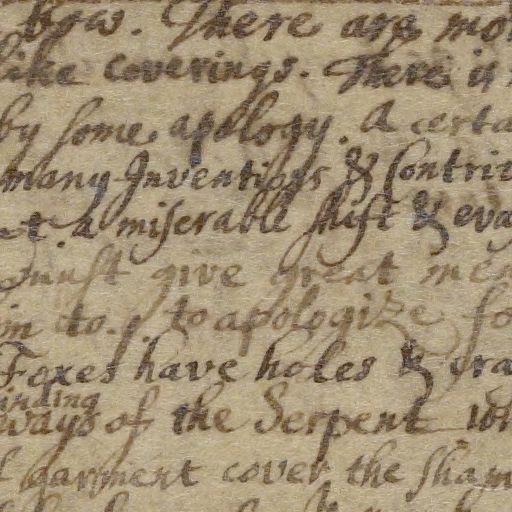 . There are mo
like coverings. There is
by some apology. A certa
many Inventions & Contriv
a miserable shift & eva
must give great me
in to. to apologize fo
Foxes have holes & cra
winding
ways of the Serpent
garment cover the sham